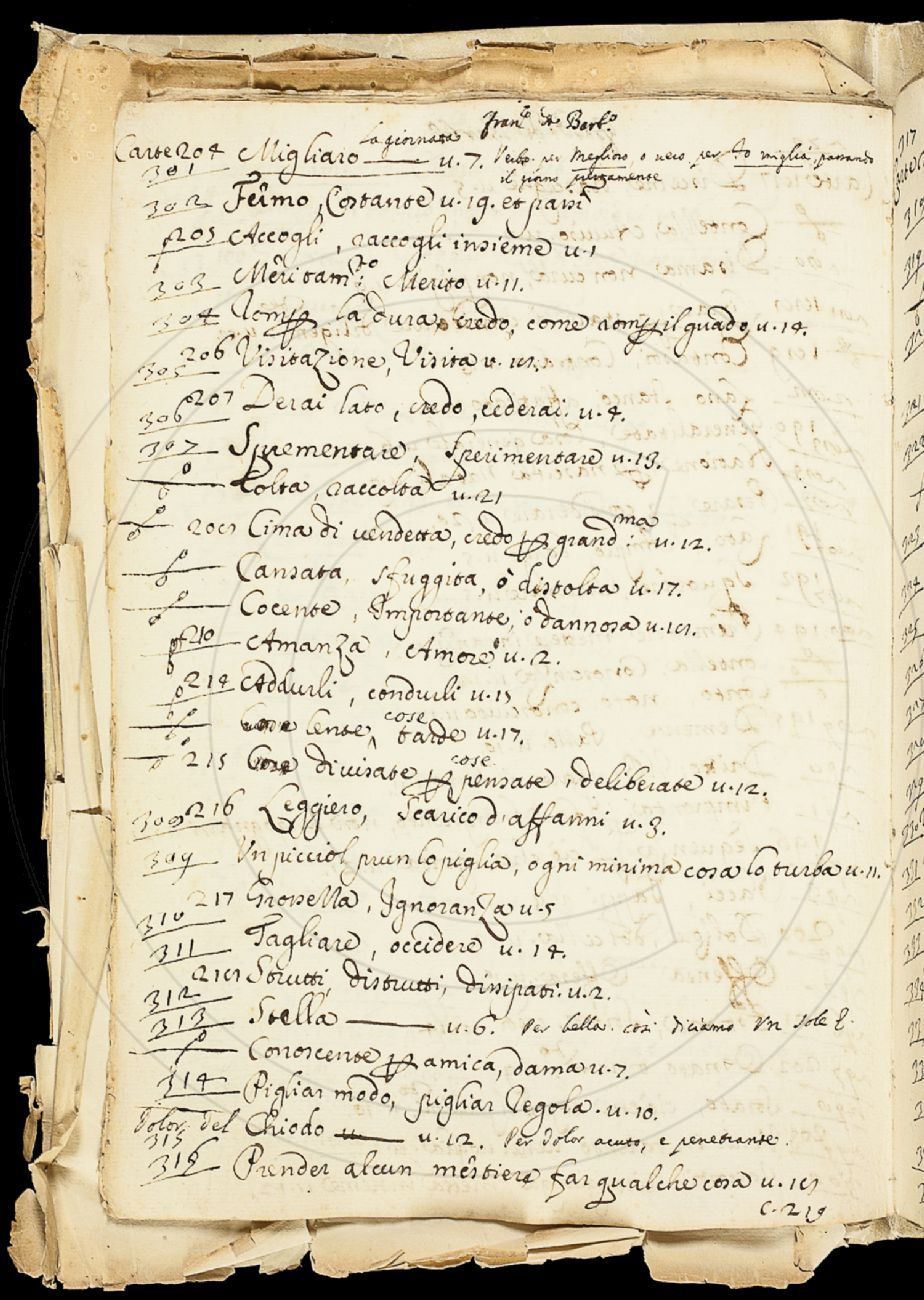 Fran.co da Barb.o
Carte 204 Migliaro la giornata u. 7. Verbo per Meglioro, o vero per fo miglia, passando
301 il giorno
302 Fermo, Costante u. 19. et passi
205 Accogli, raccogli insieme u. 1
303 Meritam.to: Merito u. 11.
304 Romp la dura, credo, come romp il guado u. 14.
206 Visitazione, Visita u. 18.
305
207 Derai lato, credo, cederai. u. 4.
306
307 Sprementare, Sperimentare u. 13.
Colta, raccolta u. 21
208 Cima di vendetta, credo p grand.ma: u. 12.
Cansata, sfuggita, ò distolta u. 17.
Cocente, Importante, ò dannosa u. 18.
210 Amanza, Amore u. 2.
214 Addurli, condurli u. 15
lente, cose tarde u. 17.
215 divisate p cose pensate, deliberate u. 12.
308 216 Leggiero, Scarico d'affanni u. 3.
309 Un picciol prun lo piglia, ogni minima cosa lo turba u. 11.
217 Grossella, Ignoranza u. 5
310
311 Tagliare, occidere u. 14.
218 Strutti, distrutti, dissipati. u. 2.
312
313 Stella u. 6. Per bella. così diciamo Un sole &.
Conoscente p amica, dama u. 7.
314 Pigliar modo, pigliar regola. u. 10.
Dolor del Chiodo u. 12. Per dolor acuto, e penetrante.
315
316 Prender alcun mestiere far qualche cosa u. 18
c. 219